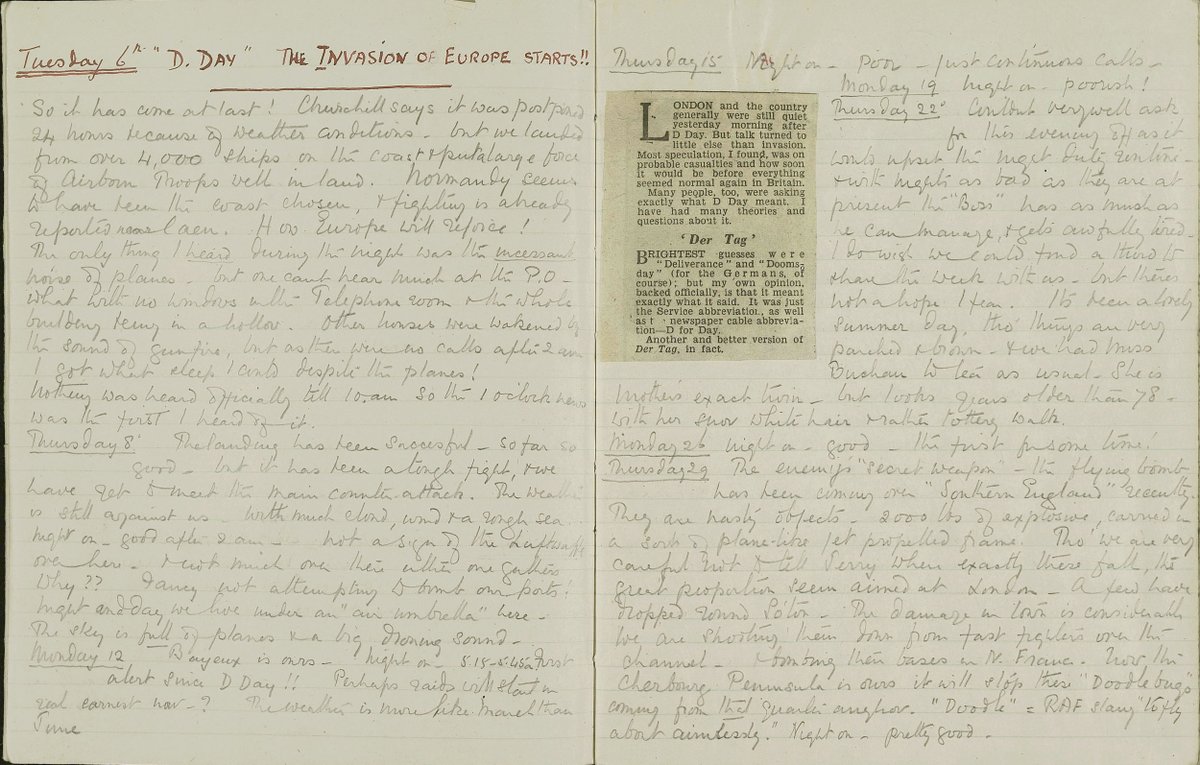 Tuesday 6th "D. DAY" THE INVASION OF EUROPE STARTS!!
So it has come at last! Churchill says it was postponed
24 hours because of weather conditions - but we landed
from over 4,000 ships on the coast & put a large force
of airborn Troops well in land. Normandy seems
to have been the coast chosen, & fighting is already
reported near Caen. How Europe will rejoice!
The only thing I heard during the night was the incessant
noise of planes - but one can't hear much at the P.O -
what with no windows in the Telephone room & the whole
building being in a hollow. Other houses were wakened by
the sound of gunfire, but as ther were no calls after 2 am
I got what sleep I could despite the planes!
Nothing was heard officially till 10.am so the 1 o'clock news
was the first I heard of it.
Thursday 8th The landing has been succesful - so far so
good - but it has been a tough fight, & we
have yet to meet the main counter-attack. The weather
is still against us - with much cloud, wind & a rough sea.
Night on - good after 2 am - not a sign of the Luftwaffe
over here - & not much over there either one gathers
Why?? Fancy not attempting to bomb our ports!
Night and day we live under an "air umbrella" here -
The sky is full of planes & a big droning sound -
Monday 12 Bayeux is ours - Night on - 5.15 - 5.45 am First
alert since D Day!! Perhaps raids will start in
real earnest now -? The weather is more like March than
June
Thursday 15 Night on - poor - just continuous calls -
Monday 19 Night on - poorish!
LONDON and the country
generally were still quiet
yesterday morning after
D Day. But talk turned to
little else than invasion.
Most speculation, I found, was on
probable casualties and how soon
it would be before everything
seemed normal again in Britain.
Many people, too, were asking
exactly what D Day meant. I
have had many theories and
questions about it.
'Der Tag'
BRIGHTEST guesses were
"Deliverance" and "Dooms-
day" (for the Germans, of
course); but my own opinion,
backed officially, is that it meant
exactly what it said. It was just
the Service abbreviation, as well
as t newspaper cable abbrevia-
tion—D for Day.
Another and better version of
Der Tag, in fact.
Thursday 22nd Couldnt very well ask
for this evening off as it
would upset the night duty routine -
& with nights as bad as they are at
present the "Boss" has as much as
he can manage, & gets awfully tired -
I do wish we could find a third to
share the week with us - but there's
not a hope I fear. Its been a lovely
summer day, tho' things are very
parched & brown - & we had Miss
Buchan to tea as usual. She is
mother's exact twin - but looks years older than 78 -
with her snow white hair & rather tottery walk.
Monday 26 night on - good - the first for some time!
Thursday 29 The enemy's "secret weapon" - the flying bomb
has been coming over "Southern England" recently
They are nasty objects - 2000 lbs of explosive, carried in
a sort of plane-like jet propelled frame. Tho' we are very
careful not to tell Jerry when exactly these fall, the
great proportion seem aimed at London - A few have
dropped round - The damage in town is considerable
We are shooting them down from fast fighters over the
channel - & bombing their bases in N. France. Now the
Cherbourg Peninsula is ours it will stop these "Doodle bugs"
coming from that quarter anyhow. "Doodle" = RAF slang "to fly
about aimlessly." Night on - pretty good -